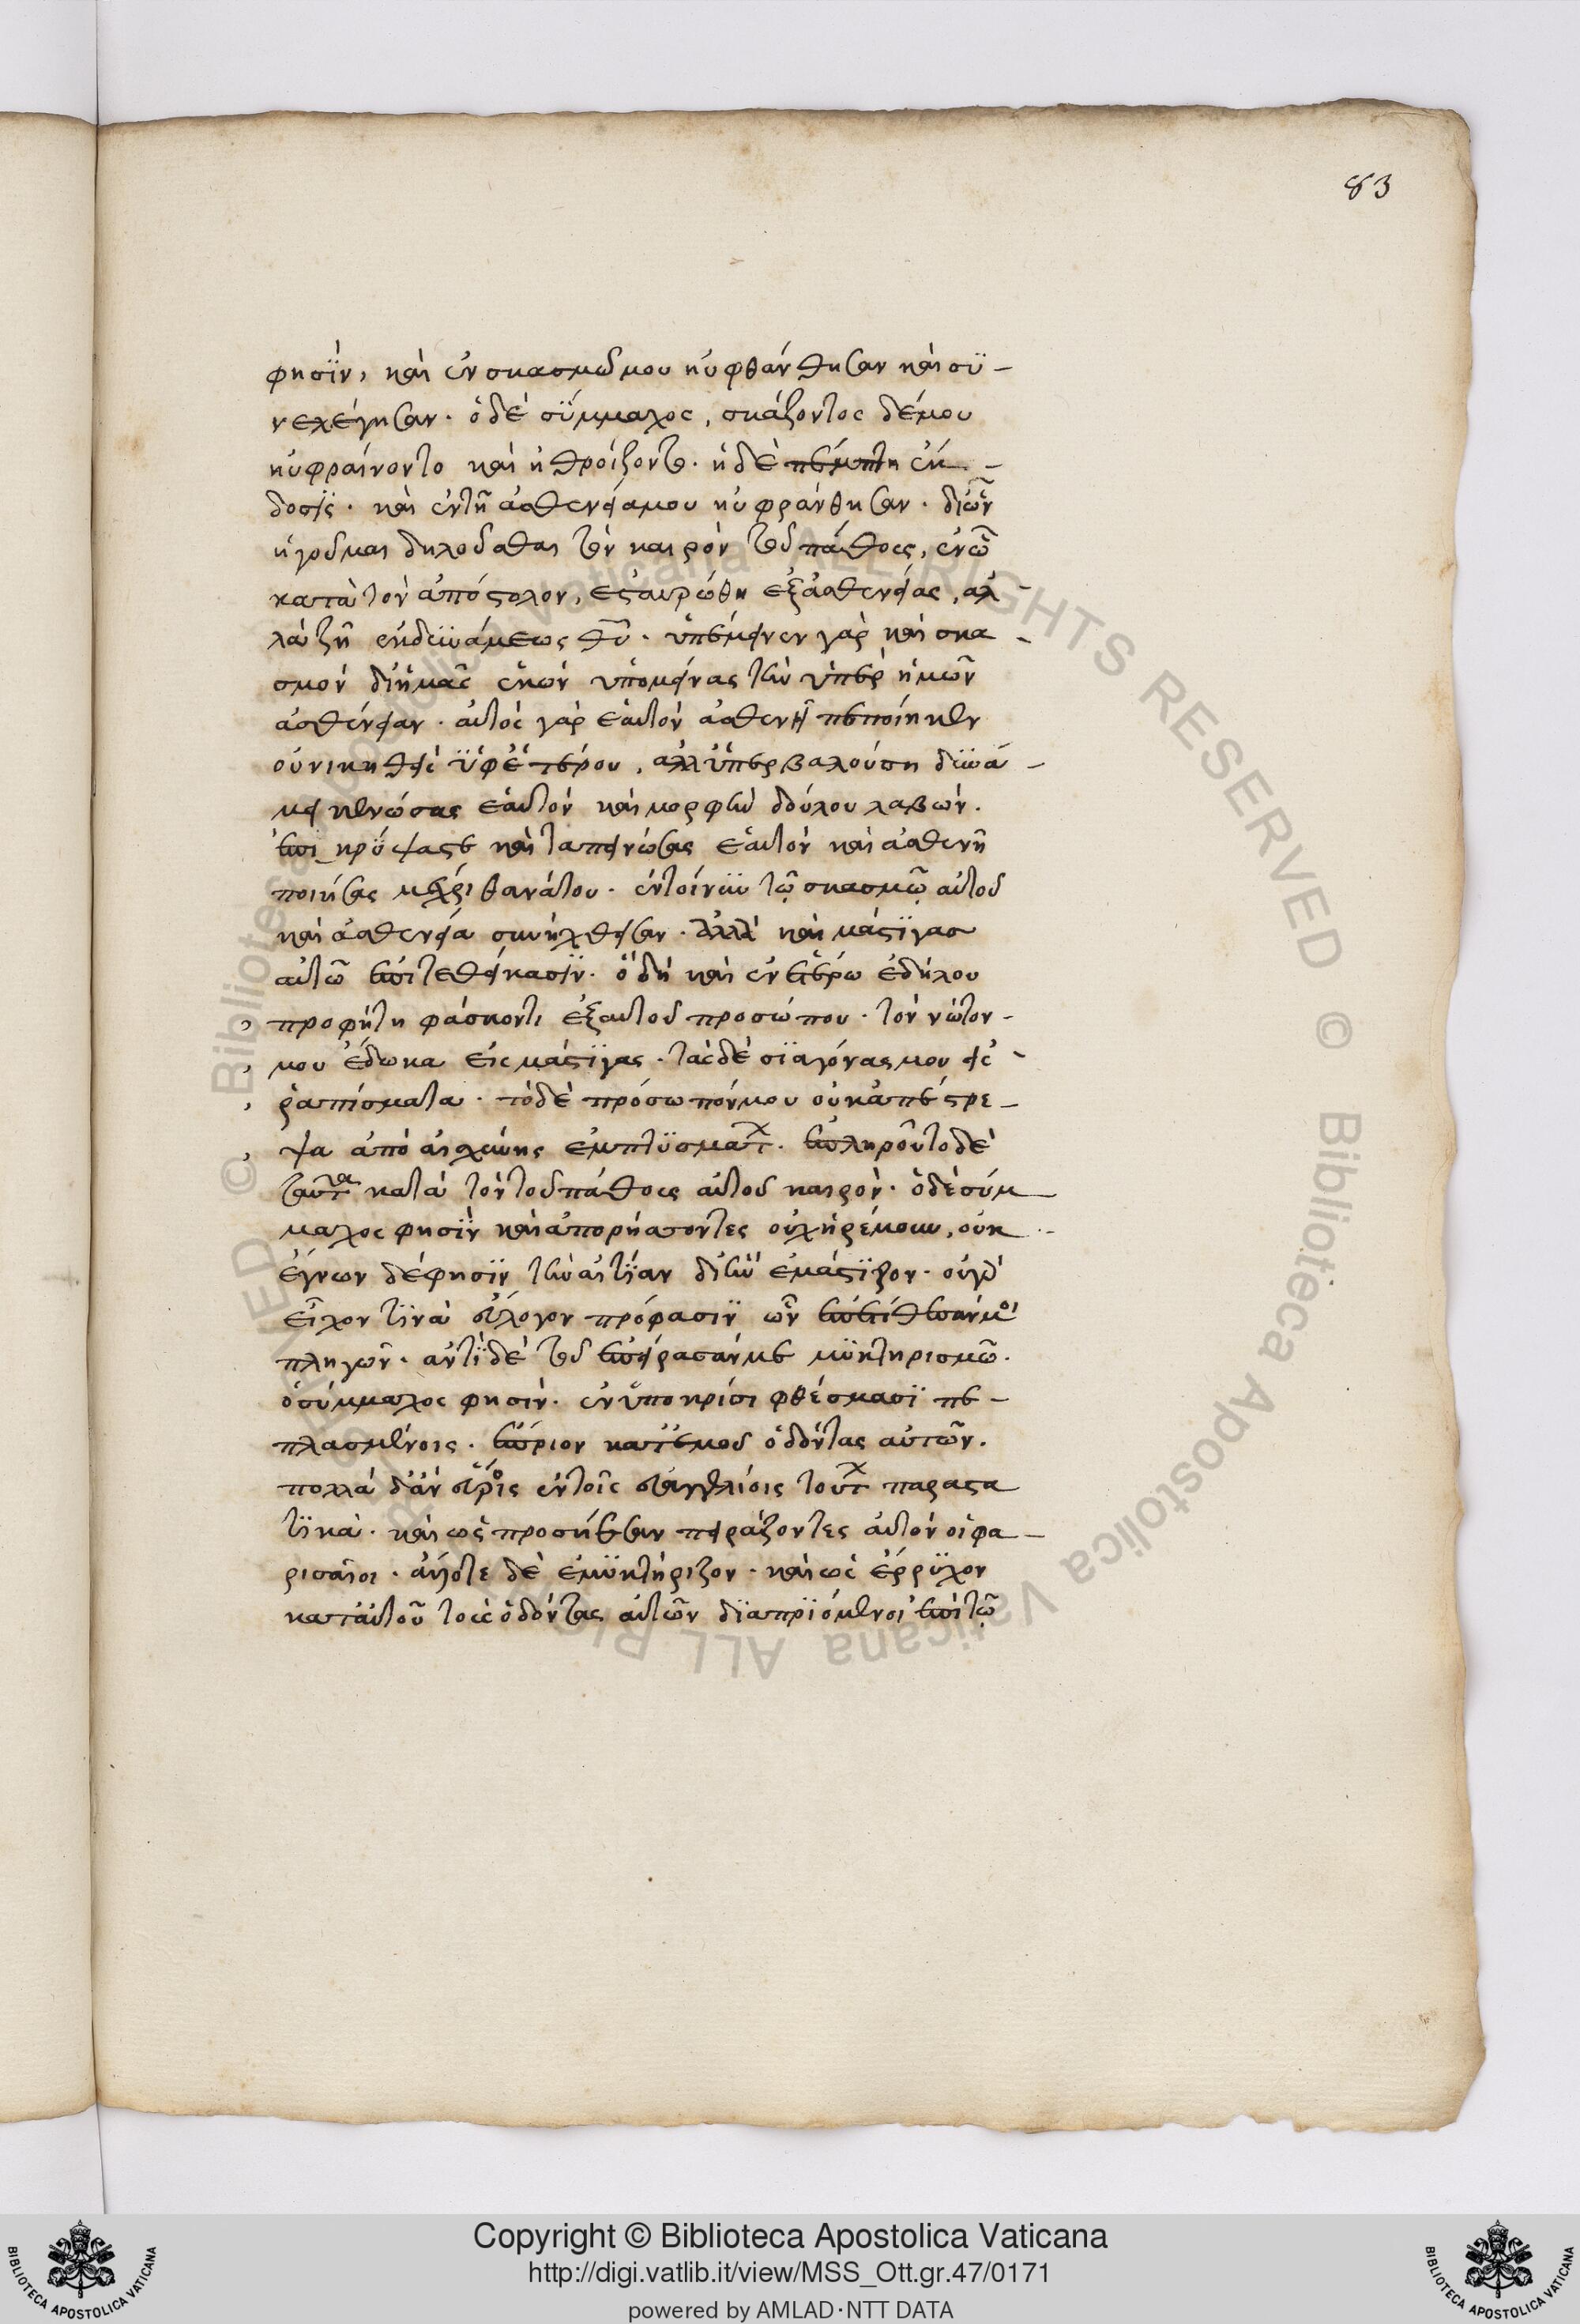 83
φησϊν, καὶ ἐν σκασμῶ μου ηὐφθάνθησαν καὶ σϋ-
νεχέγησαν. ὁ δὲ σύμμαχος, σκάζοντος δέ μου
ηὐφραίνοντο καὶ ἠθροίζοντο. ἡ δὲ πέμπτη ἔκ-
δοσις. καὶ ἐν τῆ ἀσθενεία μου ηὐφράνθησαν. δι' ὧν
ἡγοῦμαι δηλοῦσθαι τὸν καιρὸν τοῦ πάθους, ἐν ὧ
κατὰ τὸν ἀπόστολον, ἐσταυρώθη ἐξ ἀσθενείας, ἀλ
λὰ ζῆ ἐκ δυνάμεως θῦ. ὑπέμεινεν γὰρ καὶ σκα-
σμὸν δι' ἡμᾶς ἑκὼν ὑπομείνας τὴν ὑπὲρ ἡμῶν
ἀσθένειαν. αὐτὸς γὰρ ἑαυτὸν ἀσθενῆ πεποίηκεν
οὐ νικηθεὶς ὑφ' ἑτέρου, ἀλλ' ὑπερβαλούση δυνά-
μει κενώσας ἑαυτὸν καὶ μορφὴν δούλου λαβών.
ἐπικρύψας τε καὶ ταπεινώσας ἑαυτὸν καὶ ἀσθενῆ
ποιήσας μέχρι θανάτου. ἐν τοίνυν τῶ σκασμῶ αὐτοῦ
καὶ ἀσθενεία συνήχθησαν. ἀλλὰ καὶ μάστιγας
αὐτῶ ἐπιτεθείκασιν. ὃ δὴ καὶ ἐν ἑτέρω ἐδήλου
προφήτη φάσκοντι ἐξ αὐτοῦ προσώπου. τὸν νῶτον-
μου ἔδωκα εἰς μάστιγας. τὰς δὲ σιαγόνας μου εἰς
ῥαπίσματα. τὸ δὲ πρόσωπόν μου οὐκ ἀπέστρε-
ψα ἀπὸ αἰσχύνης ἐμπτυσμάτ. ἐπληροῦτο δὲ
ταῦτα κατὰ τὸν τοῦ πάθους αὐτοῦ καιρόν. ὁ δὲ σύμ-
μαχος φησὶν καὶ ἀπορήσαντες οὐχ ἠρέμουν, οὐκ
ἔγνων δέ φησϊν τὴν αἰτίαν δι' ἣν ἐμάστιζον. οὐ γὰρ
εἶχον τινὰ εὔλογον πρόφασιν ὧν ἐπετίθεσάν μοι
πληγῶν. ἀντὶ δὲ τοῦ ἐπείρασάν με μυκτηρισμῶ.
ὁ σύμμαχος φησίν. ἐν ὑποκρίσι φθέσμασϊ πε-
πλασμένοις. ἔπριον κατ' ἐμοῦ ὀδόντας αὐτῶν.
πολλὰ δ' ἂν εὕροις ἐν τοῖς εὐαγγελίοις τούτ παραστα
τϊκά. καὶ ὡς προσήεσαν πειράζοντες αὐτὸν οἱ φα-
ρισαῖοι. ἄλλοτε δὲ ἐμυκτήριζον. καὶ ὡς ἔβρυχον
κατ' αὐτοῦ τοὺς ὀδόντας αὐτῶν διαπριόμενοι ἐπὶ τῶ
Copyright © Biblioteca Apostolica Vaticana
http://digi.vatlib.it/view/MSS_Ott.gr.47/0171
powered by AMLAD·NTT DATA